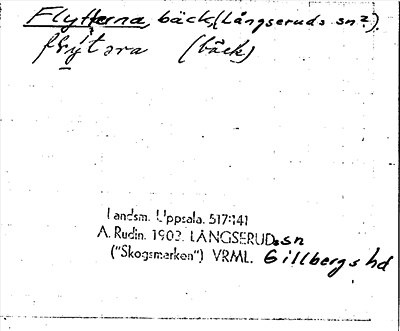 Flytterna, bäck, (Långseruds sn²).
flỳtəra (bäck)
Landsm. Uppsala. 517:141
A. Rudin. 1902. LÅNGSERUDs sn
("Skogsmarken") VRML. Gillbergs hd